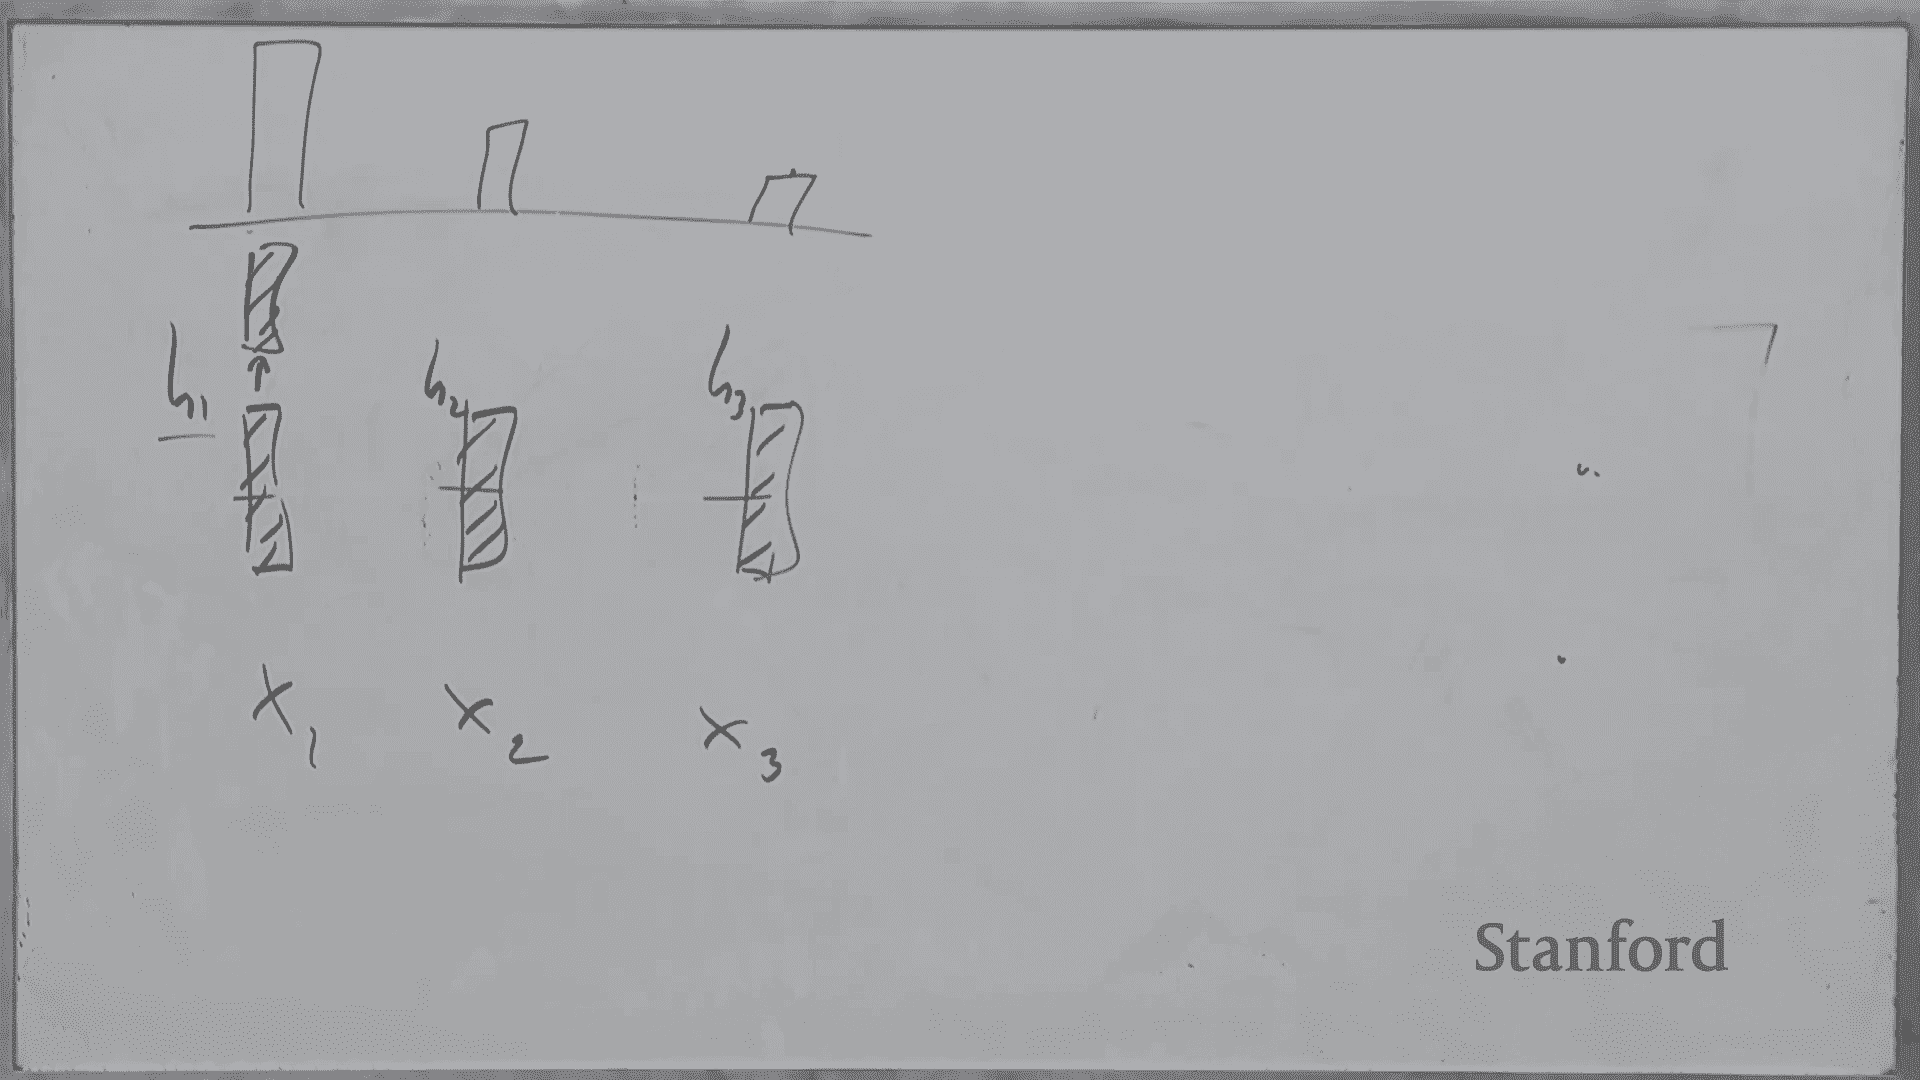 h1 h2 h3
x1 x2 x3
Stanford